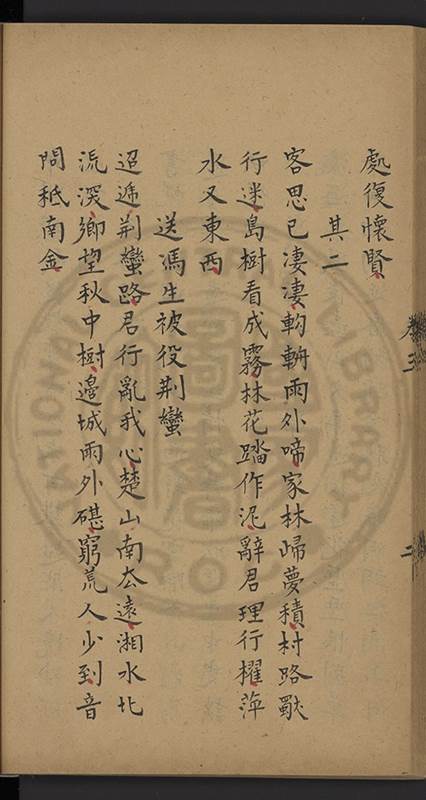 處復懷賢
其二
客思已淒淒軥輈雨外啼家林歸夢積村路歜
行迷島樹看成霧林花踏作泥辭君理行櫂萍
水又東西
送馮生被役荆蠻
迢遞荆蠻路君行亂我心楚山南去遠湘水北
流深鄉望秋中樹邊城雨外碪窮荒人少到音
問秖南金
卷三
二